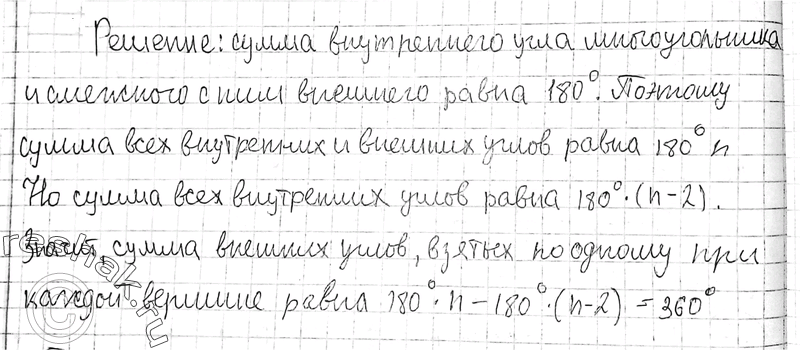 Решение: сумма внутреннего угла многоугольника
и смежного с ним внешнего равна 180°. Поэтому
сумма всех внутренних и внешних углов равна 180° n
Но сумма всех внутренних углов равна 180°·(n-2).
Значит, сумма внешних углов, взятых по одному при
каждой вершине равна 180°·n-180°·(n-2)=360°
©reshak.ru